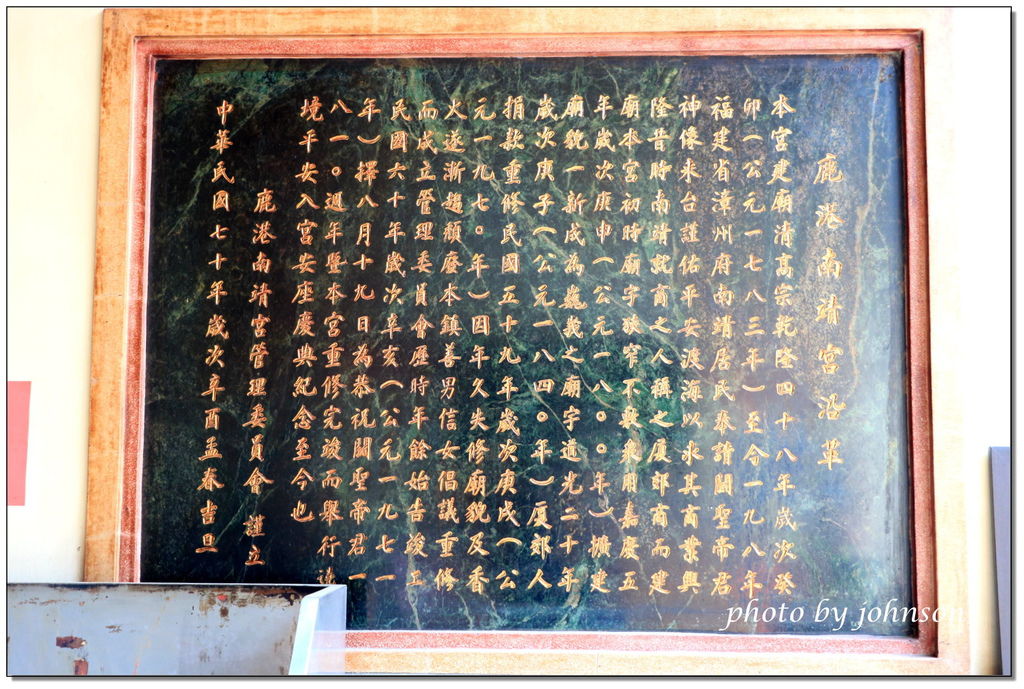 鹿港南靖宮沿革
本宮建廟清高宗乾隆四十八年歲次癸
卯(公元一七八三年)至今一九八年
福建省漳州府南靖居民奉請關聖帝君
神像來台謹佑平安渡海以求其商業興
隆昔時南靖就商之人稱之廈郊商而建
廟本宮初時廟宇狹窄不敷衆用嘉慶五
年歲次庚申(公元一八〇〇年)擴建
廟貌一新成為巍義之廟宇道光二十年
歲次庚子(公元一八四〇年)廈郊人
捐款重修民國五十九年歲次庚戌(公
元一九七〇年)因年久失修廟貌及香
火遂漸趨頹廢本鎮善男信女倡議重修
而成立管理委員會歷時年餘始告竣工
民國六十年歲次辛亥(公元一九七一
年)擇八月十九日為恭祝關聖帝君一
八一〇週年暨本宮重修完竣而舉行遶
境平安入宮安座慶典紀念至今也
鹿港南靖宮管理委員會 謹立
中華民國七十年歲次辛酉孟春吉旦
photo by johnson